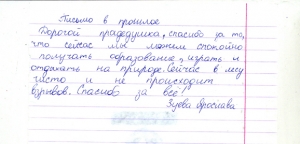 Письмо в прошлое
Дорогой прадедушка, спасибо за то,
что сейчас мы можем спокойно
получать образование, играть и
отдыхать на природе. Сейчас в лесу
чисто и не происходит
взрывов. Спасибо за всё!
Зуева Ярослава